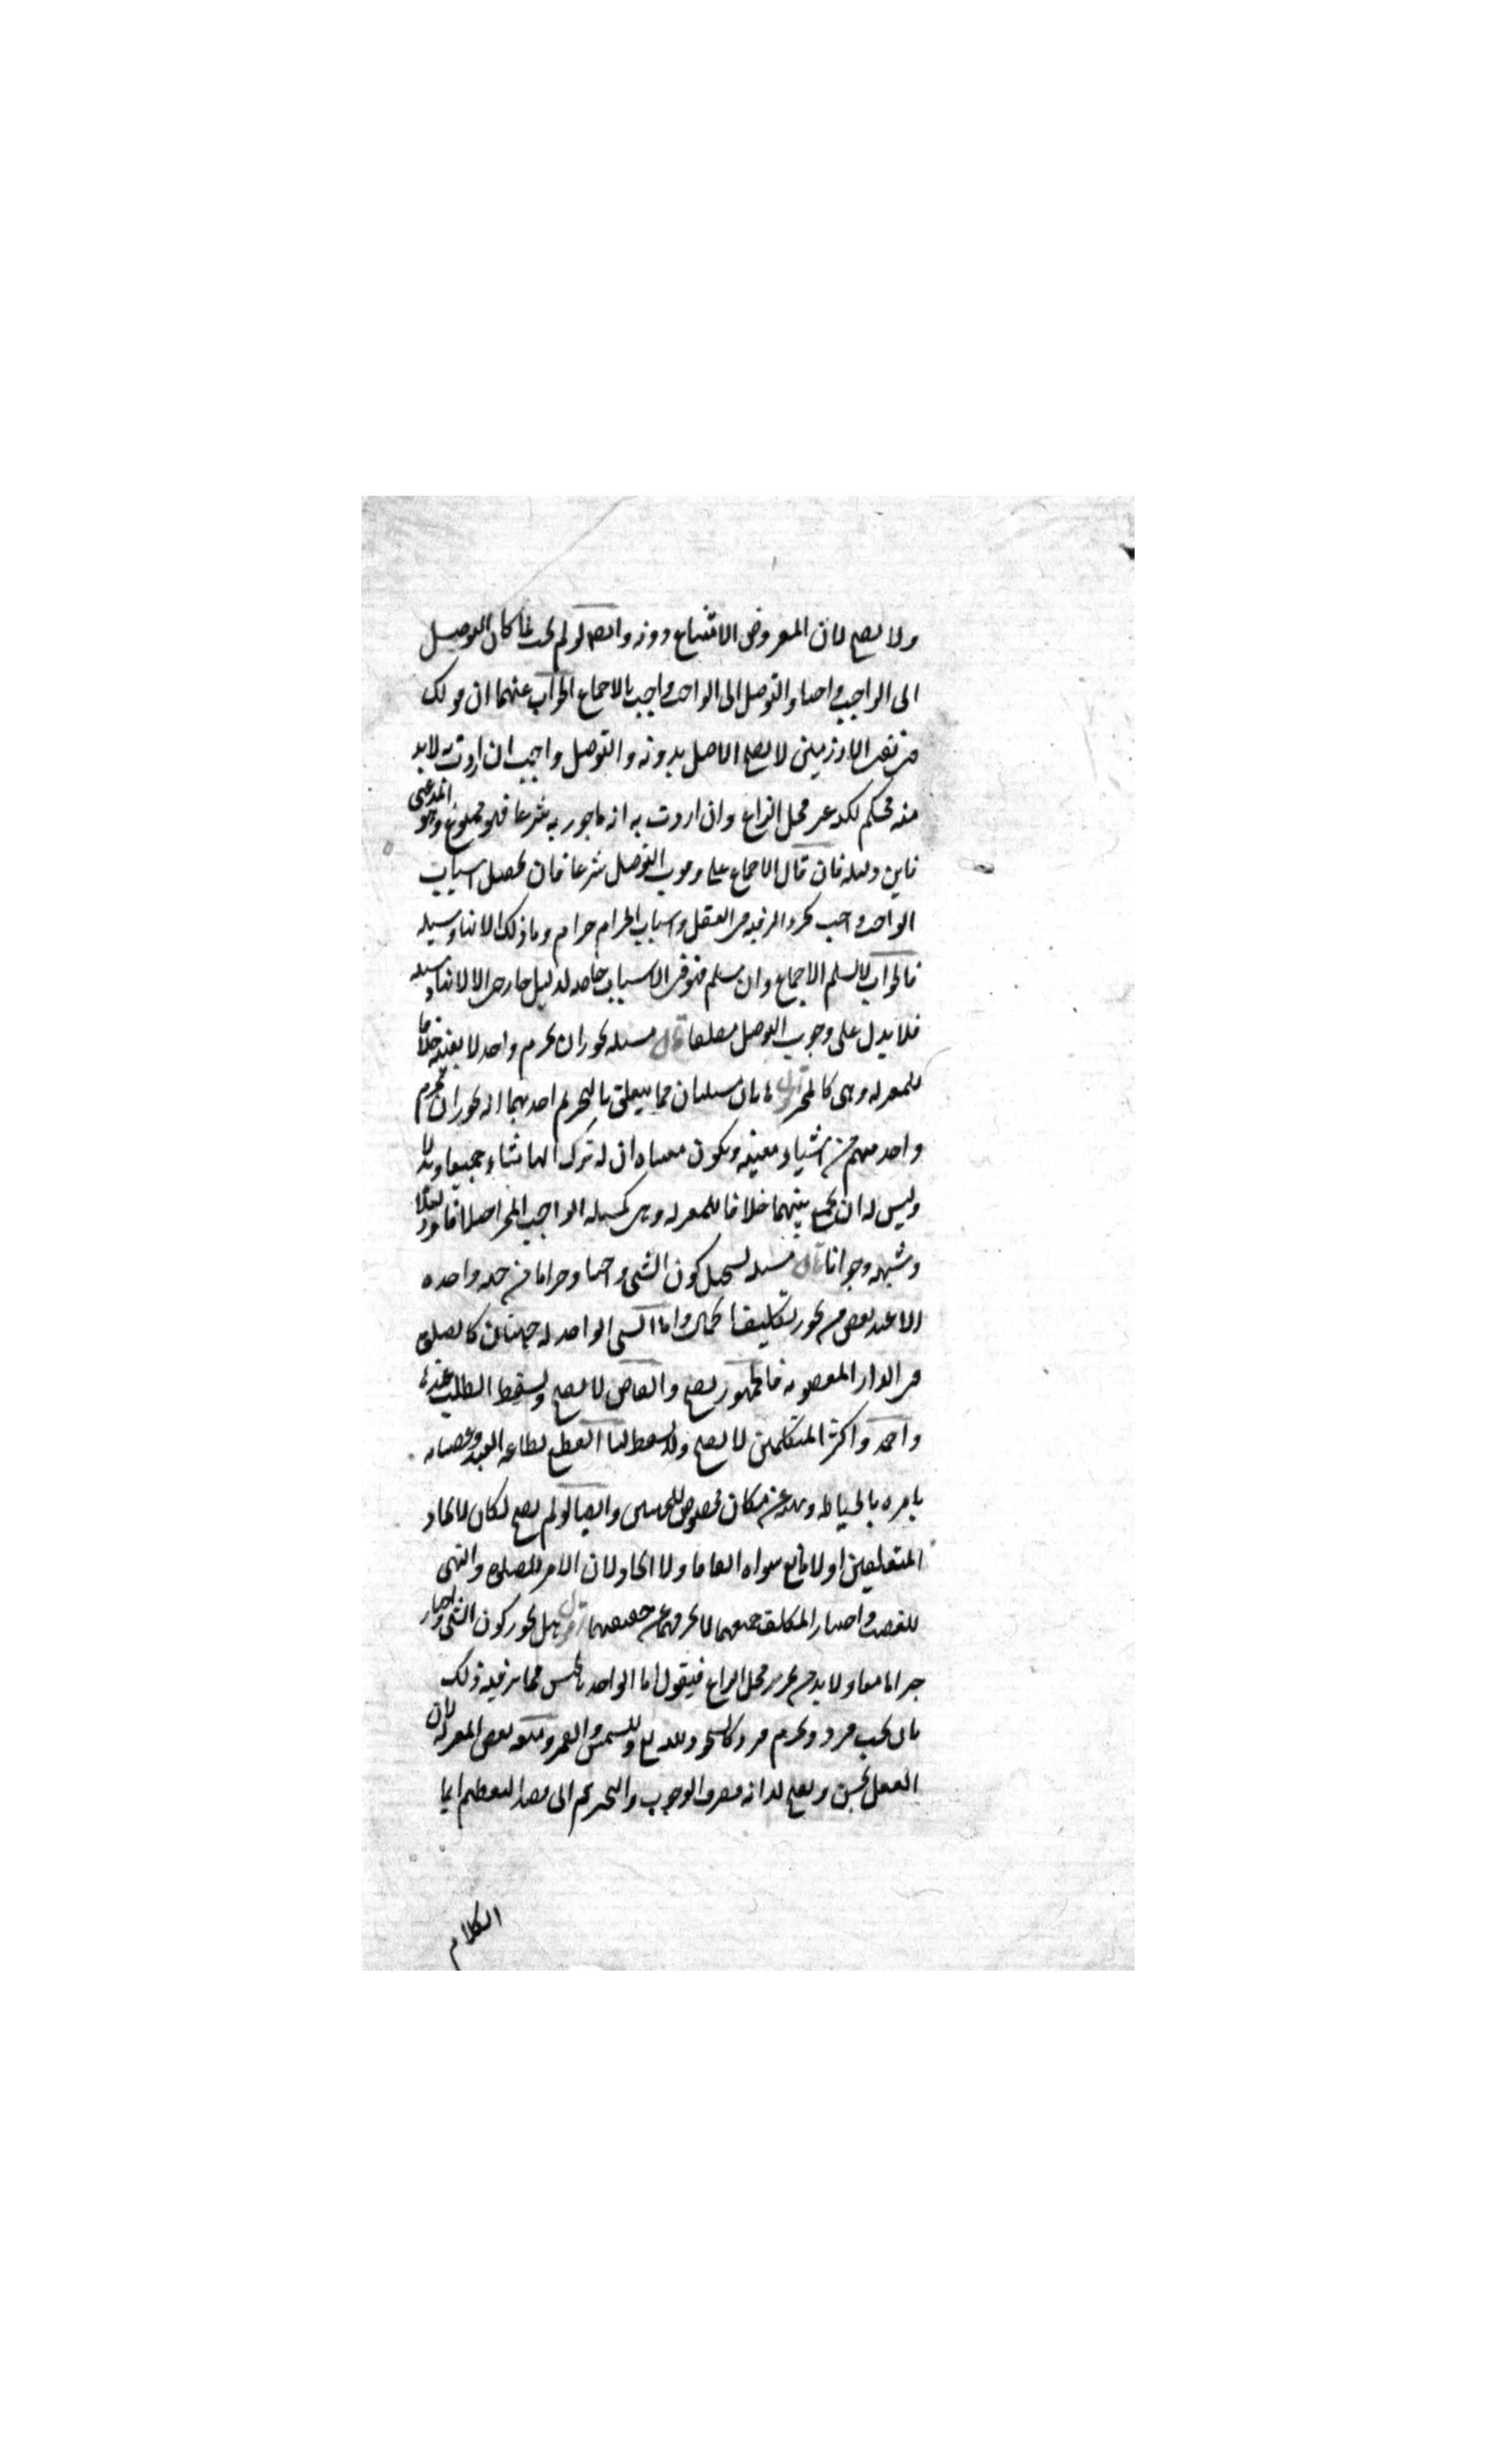 ولا يصح لان المفروض الامتناع دونه وايضا لو لم يجب لما كان التوصل
الى الواجب واجبا والتوصل الى الواجب واجب بالاجماع الجواب عنهما ان قولك
في نفس الملازمتين لا يصح الاصل بدونه والتوصل واجب ان اردت به لابد
منه فمسلم لكنه غير محل النزاع وان اردت به انه مأمور به شرعا فهو ممنوع وهو المدعى
فاين دليله فان قال الاجماع على وجوب التوصل شرعا فان تحصيل اسباب
الواجب واجب كحز الرقبة في القتل واسباب الحرام حرام وما ذلك الا لانها وسيلة
فالجواب لا نسلم الاجماع وان سلم ففي الاسباب خاصة لدليل خارجى لا لانها وسيلة
فلا يدل على وجوب التوصل مطلقا قال مسئلة يجوز ان يحرم واحد لا بعينه خلافا
للمعتزلة وهى كالمخير اقول هاتان مسئلتان مما يتعلق بالتحريم احديهما انه يجوز ان يحرم
واحد مبهم من اشياء معينة ويكون معناه ان له ترك ايها شاء جميعا وبدلا
وليس له ان يجمع بينهما خلافا للمعتزلة وهى كمسئلة الواجب المخير اصلا فانقد لفظا
وشبهة وجوابا قال مسئلة يستحيل كون الشئ واجبا وحراما من جهة واحدة
الا عند بعض من يجوز تكليف المحال واما الشئ الواحد له جهتان كالصلوة
في الدار المغصوبة فالجمهور يصح والقاضى لا يصح ويسقط الطلب عندها
واحمد واكثر المتكلمين لا يصح ولا يسقط لنا القطع بطاعة العبد وعصيانه
بامره بالخياطة ونهيه عن مكان مخصوص للجهتين وايضا لو لم يصح لكان لاتحاد
المتعلقين اذ لا مانع سواه اتفاقا ولا اتحاد لان الامر للصلوة والنهى
للغصب واختيار المكلف جمعهما لا يخرجهما عن حقيقتهما اقول هل يجوز كون الشئ واجبا
حراما معا ولا بد من تحرير محل النزاع فيقول اما الواحد بالجنس فجائز فيه ذلك
بان يجب فرد ويحرم فرد كالسجود لله وللشمس والقمر ومنعه بعض المعتزلة لان
الفعل يحسن ويقبح لذاته فصرف الوجوب والتحريم الى قصد التعظيم انما
الكلام